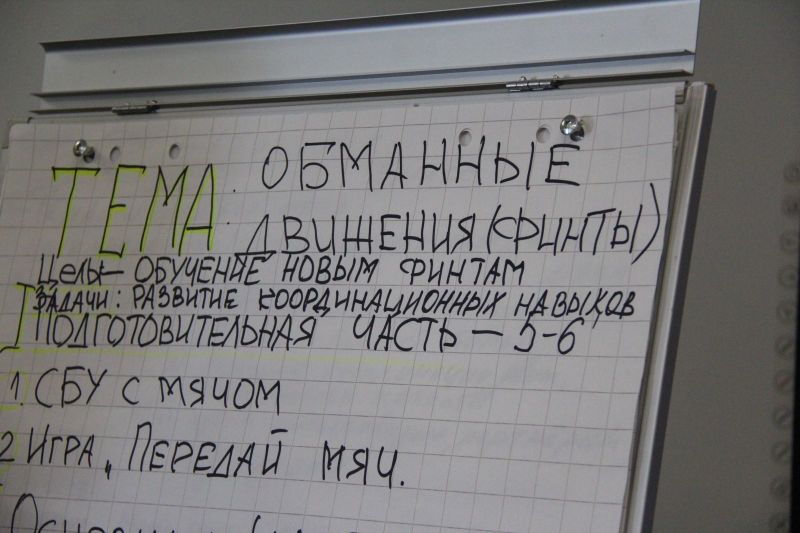 ТЕМА: ОБМАННЫЕ
ДВИЖЕНИЯ (ФИНТЫ)
Цель – ОБУЧЕНИЕ НОВЫМ ФИНТАМ
ЗАДАЧИ: РАЗВИТИЕ КООРДИНАЦИОННЫХ НАВЫКОВ
I ПОДГОТОВИТЕЛЬНАЯ ЧАСТЬ – 5-6
1. СБУ С МЯЧОМ
2 ИГРА „ ПЕРЕДАЙ МЯЧ.